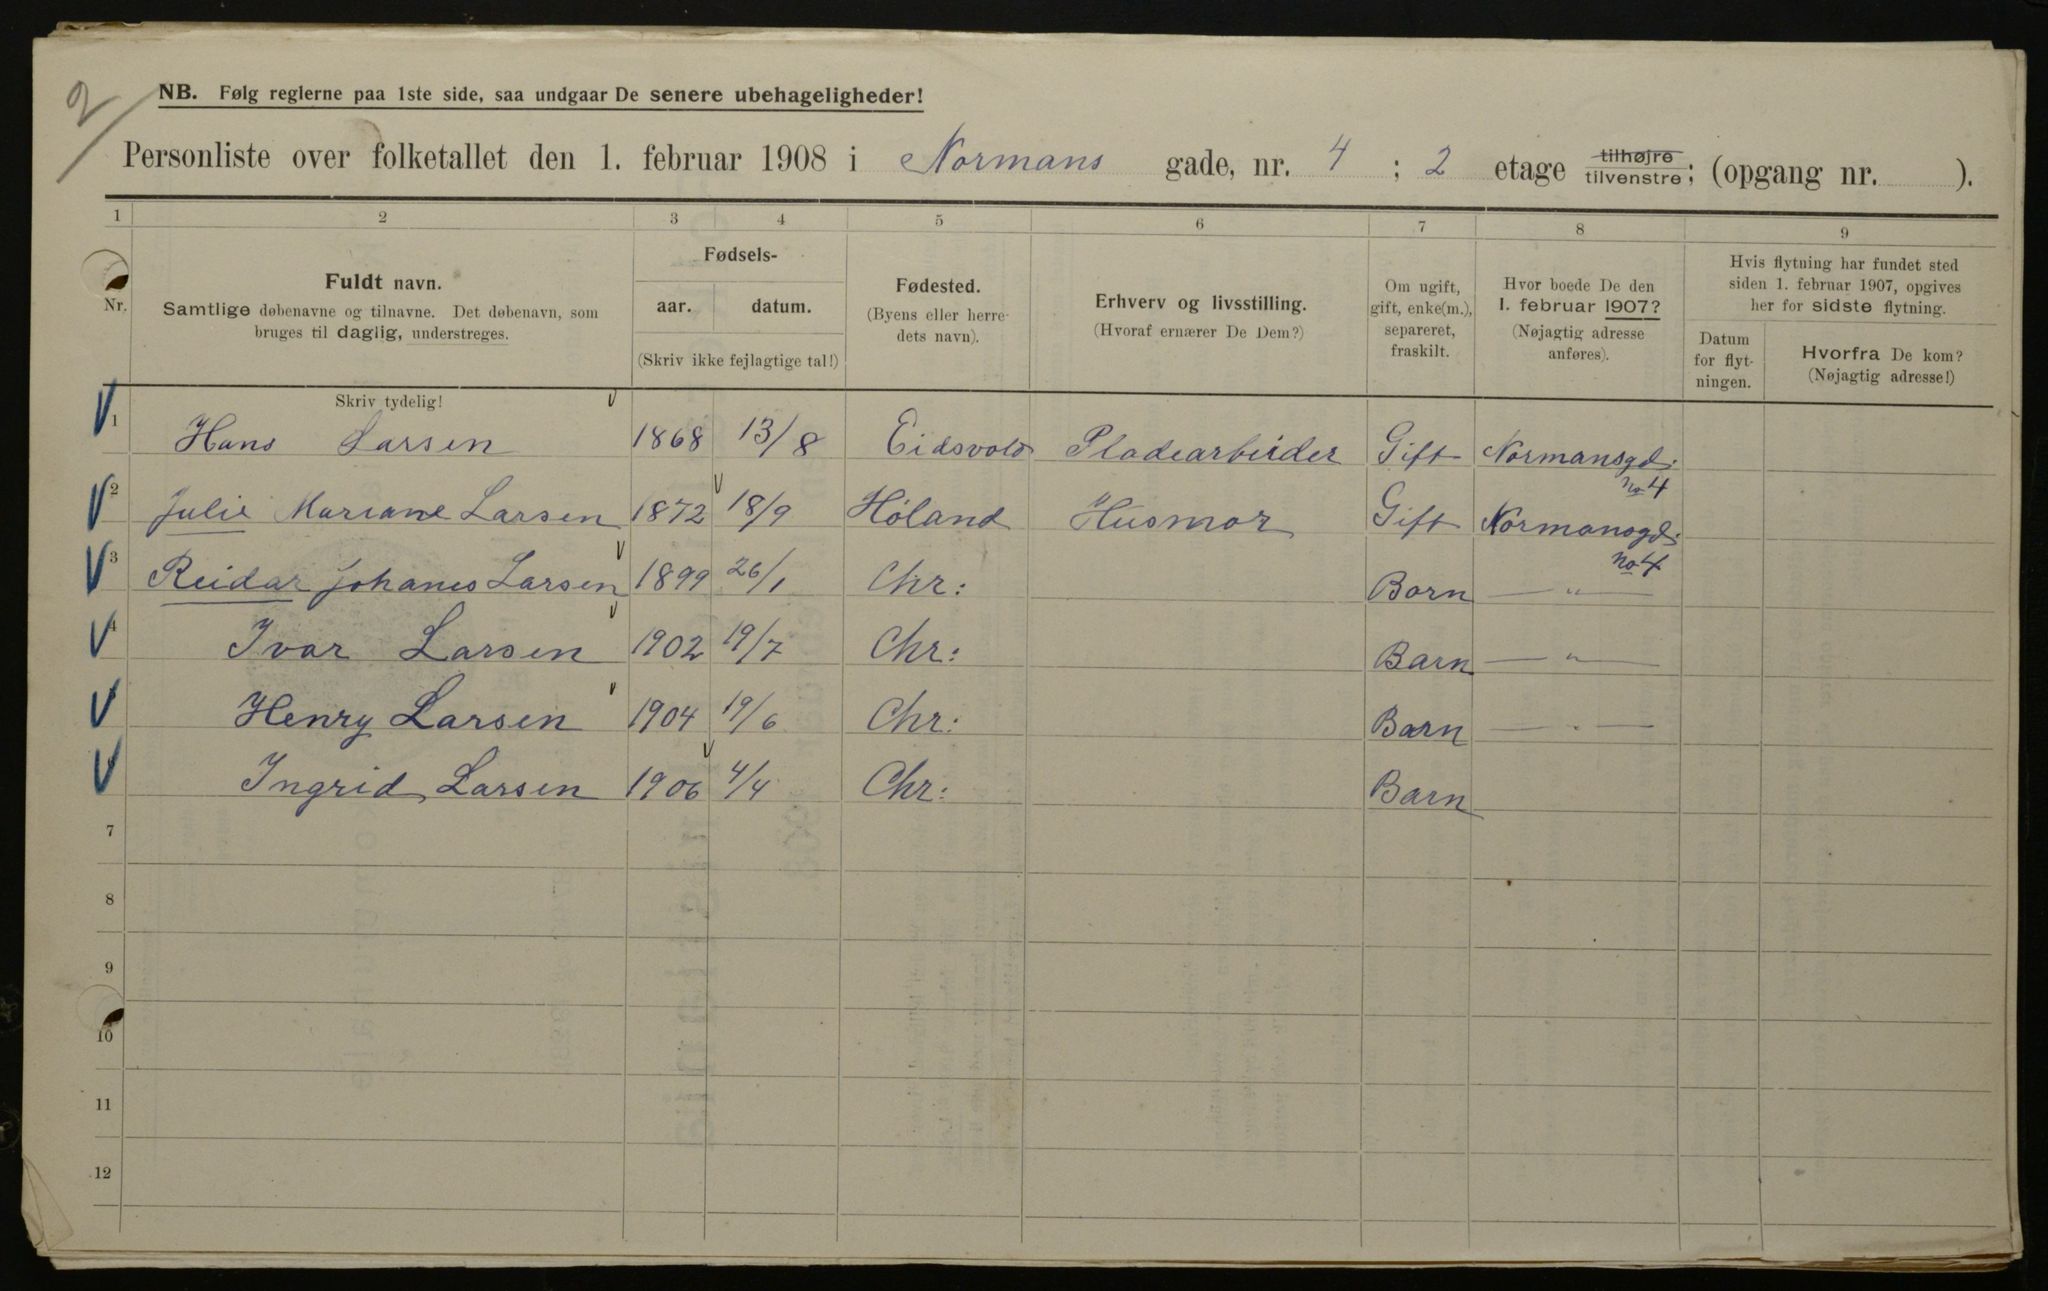 2
NB. Følg reglerne paa 1ste side, saa undgaar De senere ubehageligheder!
Personliste over folketallet den 1. februar 1908 i Normans gade, nr. 4 ; 2 etage tilhøjre tilvenstre; (opgang nr. ).
1 2 3 4 5 6 7 8 9
Nr.
Fuldt navn.
Samtlige døbenavne og tilnavne. Det døbenavn, som
bruges til daglig, understreges.
Fødsels-
aar. datum.
(Skriv ikke fejlagtige tal!)
Fødested.
(Byens eller herre-
dets navn).
Erhverv og livsstilling.
(Hvoraf ernærer De Dem?)
Om ugift,
gift, enke(m.),
separeret,
fraskilt.
Hvor boede De den
1. februar 1907?
(Nøjagtig adresse
anføres).
Hvis flytning har fundet sted
siden 1. februar 1907, opgives
her for sidste flytning.
Datum
for flyt-
ningen.
Hvorfra De kom?
(Nøjagtig adresse!)
Skriv tydelig!
1 Hans Larsen 1868 13/8 Eidsvold Pladearbeider Gift Normansgd: no 4
2 Julie Mariane Larsen 1872 18/9 Höland Husmor Gift Normansgd: no 4
3 Reidar Johanes Larsen 1899 26/1 Chr: Barn — " —
4 Ivar Larsen 1902 19/7 Chr: Barn — " —
Henry Larsen 1904 19/6 Chr: Barn — " —
Ingrid Larsen 1906 4/4 Chr: Barn
7
8
9
10
11
12